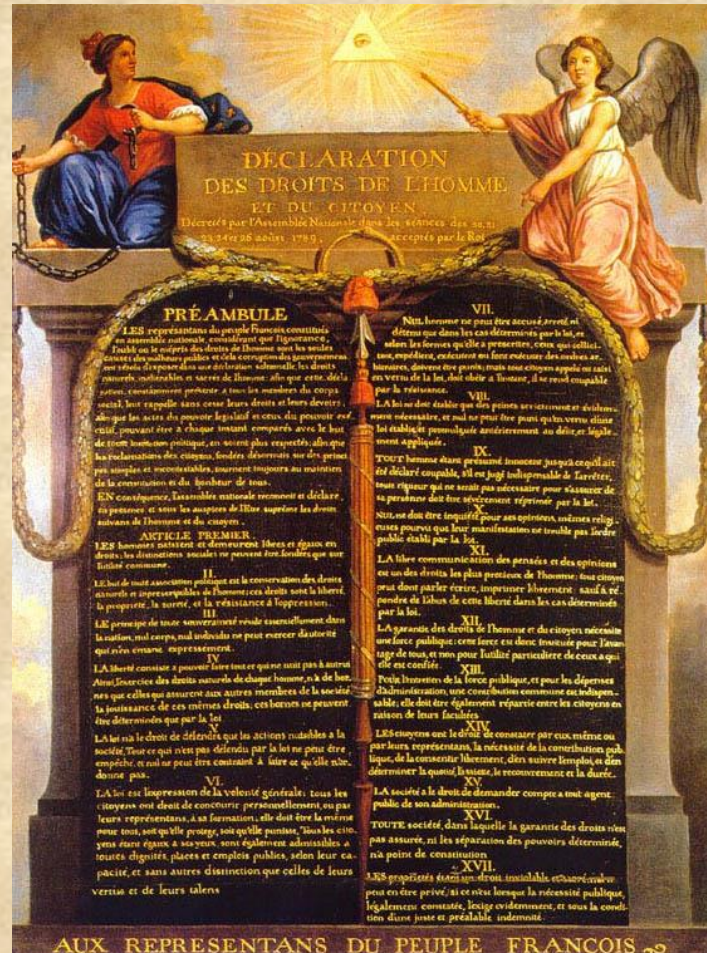 DÉCLARATION
DES DROITS DE L'HOMME
ET DU CITOYEN
Décretés par l'Assemblée Nationale dans les séances des 20, 21
23, 24 et 26 août 1789, acceptés par le Roi
PRÉAMBULE
LES représentans du peuple François, constitués
en assemblée nationale, considérant que l'ignorance,
l'oubli ou le mépris des droits de l'homme sont les seules
causes des malheurs publics et de la corruption des gouvernemens
ont résolu d'exposer dans une déclaration solemnelle, les droits
naturels, inaliénables et sacrés de l'homme: afin que cette décla
ration, constamment présente a tous les membres du corps
social, leur rappelle sans cesse leurs droits et leurs devoirs;
afin que les actes du pouvoir legislatif et ceux du pouvoir exé
cutif, pouvant être à chaque instant comparés avec le but
de toute institution politique, en soient plus respectés; afin que
les reclamations des citoyens, fondées désormais sur des princi
pes simples et incontestables, tournent toujours au maintien
de la constitution et du bonheur de tous.
EN conséquence, l'assemblée nationale reconnoit et déclare,
en presence et sous les auspices de l'Etre suprême les droits
suivans de l'homme et du citoyen.
ARTICLE PREMIER.
LES hommes naissent et demeurent libres et égaux en
droits; les distinctions sociales ne peuvent être fondées que sur
l'utilité commune.
II.
LE but de toute association politique est la conservation des droits
naturels et imprescriptibles de l'homme; ces droits sont la liberté,
la propriété, la sureté, et la résistance à l'oppression.
III.
LE principe de toute souveraineté réside essentiellement dans
la nation, nul corps, nul individu ne peut exercer d'autorité
qui n'en émane expressement.
IV
LA liberté consiste a pouvoir faire tout ce qui ne nuit pas à autrui
Ainsi, l'exercice des droits naturels de chaque homme, n'a de bor
nes que celles qui assurent aux autres membres de la société
la jouissance de ces mêmes droits; ces bornes ne peuvent
être déterminées que par la loi
V.
LA loi n'a le droit de défendre que les actions nuisibles a la
société. Tout ce qui n'est pas défendu par la loi ne peut être
empêché, et nul ne peut être contraint à faire ce qu'elle n'or-
donne pas.
VI.
LA loi est l'expression de la volonté générale; tous les
citoyens ont droit de concourir personnellement, ou par
leurs représentans, à sa formation; elle doit être la même
pour tous, soit qu'elle protege, soit qu'elle punisse, Tous les cito
yens étant égaux à ses yeux, sont également admissibles a
toutes dignités, places et emplois publics, selon leur ca-
pacité, et sans autres distinction que celles de leurs
vertus et de leurs talens
VII.
NUL homme ne peut être accusé, arreté, ni
détenu que dans les cas déterminés par la loi, et
selon les formes qu'elle a prescrites, ceux qui sollici-
tent, expédient, exécutent ou font exécuter des ordres ar-
bitraires, doivent être punis; mais tout citoyen appelé ou saisi
en vertu de la loi, doit obéir a l'instant, il se rend coupable
par la résistance.
VIII.
LA loi ne doit établir que des peines strictement et évidem-
ment nécessaire, et nul ne peut être puni qu'en vertu d'une
loi établie et promulguée antérierement au délit, et légale-
ment appliquée.
IX.
TOUT homme étant présumé innocent jusqu'à ce qu'il ait
été déclaré coupable, s'il est jugé indispensable de l'arrêter,
toute rigueur qui ne serait pas nécessaire pour s'assurer de
sa personne doit être sévèrement réprimée par la loi.
X.
NUL ne doit être inquiété pour ses opinions, mêmes religi-
euses pourvu que leur manifestation ne trouble pas l'ordre
public établi par la loi.
XI.
LA libre communication des pensées et des opinions
est un des droits les plus precieux de l'homme; tout citoyen
peut dont parler écrire, imprimer librement sauf à ré-
pondre de l'abus de cette liberté dans les cas déterminés
par la loi.
XII.
LA garantie des droits de l'homme et du citoyen nécessite
une force publique; cette force est donc instituée pour l'avan-
tage de tous, et non pour l'utilité particuliere de ceux a qui
elle est confiée.
XIII.
Pour l'entretien de la force publique, et pour les dépenses
d'administration, une contribution commune est indispen-
sable; elle doit être également répartie entre les citoyens en
raison de leurs facultées
XIV.
LES citoyens ont le droit de constater par eux même ou
par leurs représentans, la nécessité de la contribution pub-
lique, de la consentir librement, d'en suivre l'emploi, et d'en
déterminer la quotité, l'assiete, le recouvrement et la durée.
XV.
LA société a le droit de demander compte a tout agent
public de son administration.
XVI.
TOUTE société, dans laquelle la garantie des droits n'est
pas assurée, ni les séparation des pouvoirs déterminée,
n'a point de constitution
XVII.
LES propriétés étant un droit inviolable et sacré, nul ne
peut en être privé, si ce n'est lorsque la nécessité publique,
légalement constatée, l'exige evidemment, et sous la condi
tion d'une juste et préalable indemnité
AUX REPRESENTANS DU PEUPLE FRANCOIS